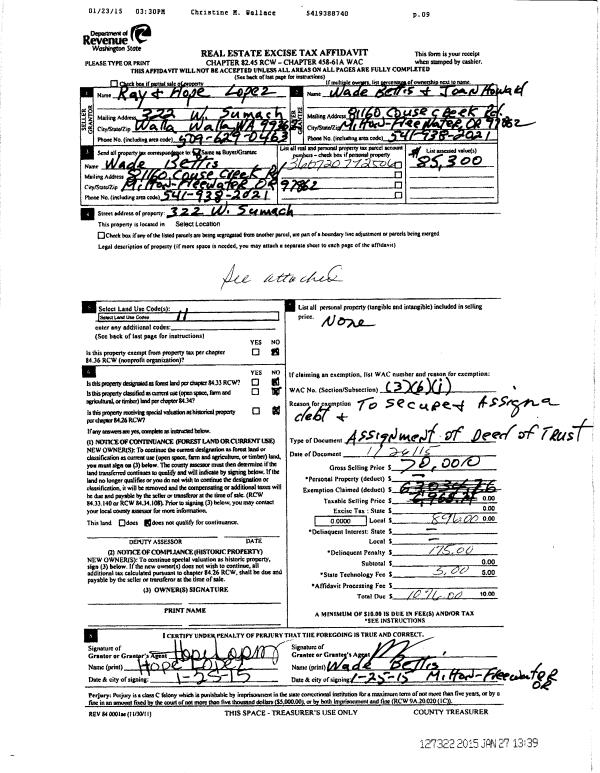 01/23/15 03:30PM Christine M. Wallace 5419388740 p.09
Department of
Revenue
Washington State
REAL ESTATE EXCISE TAX AFFIDAVIT
This form is your receipt
PLEASE TYPE OR PRINT
CHAPTER 82.45 RCW – CHAPTER 458-61A WAC
when stamped by cashier.
THIS AFFIDAVIT WILL NOT BE ACCEPTED UNLESS ALL AREAS ON ALL PAGES ARE FULLY COMPLETED
(See back of last page for instructions)
Check box if partial sale of property
If multiple owners, list percentage of ownership next to name.
1 Name Ray & Hope Lopez
2 Name Wade Bettis & Joan Howard
SELLER GRANTOR
Mailing Address 322 W. Sumach
City/State/Zip Walla Walla WA 99362
Phone No. (including area code) 509-629-0463
BUYER GRANTEE
Mailing Address 81160 Couse Creek Rd.
City/State/Zip Milton Freewater OR 97862
Phone No. (including area code) 541-938-2021
3 Send all property tax correspondence to: Same as Buyer/Grantee
Name Wade Bettis
Mailing Address 81160 Couse Creek Rd
City/State/Zip Milton-Freewater OR 97862
Phone No. (including area code) 541-938-2021
List all real and personal property tax parcel account
numbers – check box if personal property
360720772506
List assessed value(s)
# 85,300
4 Street address of property: 322 W. Sumach
This property is located in Select Location
Check box if any of the listed parcels are being segregated from another parcel, are part of a boundary line adjustment or parcels being merged
Legal description of property (if more space is needed, you may attach a separate sheet to each page of the affidavit)
See attached
5 Select Land Use Code(s):
Select Land Use Codes 11
enter any additional codes:
(See back of last page for instructions)
YES NO
Is this property exempt from property tax per chapter
84.36 RCW (nonprofit organization)?
6 YES NO
Is this property designated as forest land per chapter 84.33 RCW?
Is this property classified as current use (open space, farm and
agricultural, or timber) land per chapter 84.34?
Is this property receiving special valuation as historical property
per chapter 84.26 RCW?
If any answers are yes, complete as instructed below.
(1) NOTICE OF CONTINUANCE (FOREST LAND OR CURRENT USE)
NEW OWNER(S): To continue the current designation as forest land or
classification as current use (open space, farm and agriculture, or timber) land,
you must sign on (3) below. The county assessor must then determine if the
land transferred continues to qualify and will indicate by signing below. If the
land no longer qualifies or you do not wish to continue the designation or
classification, it will be removed and the compensating or additional taxes will
be due and payable by the seller or transferor at the time of sale. (RCW
84.33.140 or RCW 84.34.108). Prior to signing (3) below, you may contact
your local county assessor for more information.
This land does does not qualify for continuance.
DEPUTY ASSESSOR DATE
(2) NOTICE OF COMPLIANCE (HISTORIC PROPERTY)
NEW OWNER(S): To continue special valuation as historic property,
sign (3) below. If the new owner(s) does not wish to continue, all
additional tax calculated pursuant to chapter 84.26 RCW, shall be due and
payable by the seller or transferor at the time of sale.
(3) OWNER(S) SIGNATURE
PRINT NAME
7 List all personal property (tangible and intangible) included in selling
price.
None
If claiming an exemption, list WAC number and reason for exemption:
WAC No. (Section/Subsection) (3)(b)(i)
Reason for exemption To secure & Assign a
debt &
Type of Document Assignment of Deed of Trust
Date of Document 1/26/15
Gross Selling Price $ 70,000
*Personal Property (deduct) $
Exemption Claimed (deduct) $
Taxable Selling Price $ 0.00
Excise Tax : State $ 0.00
0.0000 Local $ 896.00 0.00
*Delinquent Interest: State $ –
Local $ –
*Delinquent Penalty $ 175.00
Subtotal $ 0.00
*State Technology Fee $ 5.00 5.00
*Affidavit Processing Fee $
Total Due $ 1076.00 10.00
A MINIMUM OF $10.00 IS DUE IN FEE(S) AND/OR TAX
*SEE INSTRUCTIONS
8 I CERTIFY UNDER PENALTY OF PERJURY THAT THE FOREGOING IS TRUE AND CORRECT.
Signature of
Grantor or Grantor's Agent Hope Lopez
Name (print) Hope Lopez
Date & city of signing: 1-25-15
Signature of
Grantee or Grantee's Agent
Name (print) Wade Bettis
Date & city of signing: 1-25-15 Milton-Freewater OR
Perjury: Perjury is a class C felony which is punishable by imprisonment in the state correctional institution for a maximum term of not more than five years, or by a
fine in an amount fixed by the court of not more than five thousand dollars ($5,000.00), or by both imprisonment and fine (RCW 9A.20.020 (1C)).
REV 84 0001ae (11/30/11) THIS SPACE - TREASURER'S USE ONLY COUNTY TREASURER
127322 2015 JAN 27 13:39